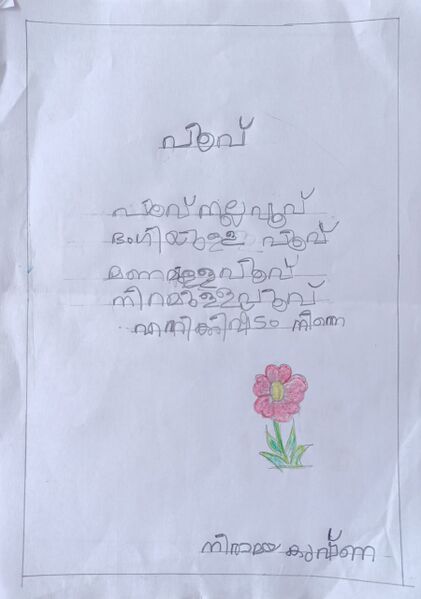 പൂവ്
പൂവ് നല്ല പൂവ്
ഭംഗിയുള്ള പൂവ്
മണമുള്ള പൂവ്
നിറമുള്ള പൂവ്
എനിക്കിഷ്ടം നിന്നെ
നിരാമയ കൃഷ്ണ